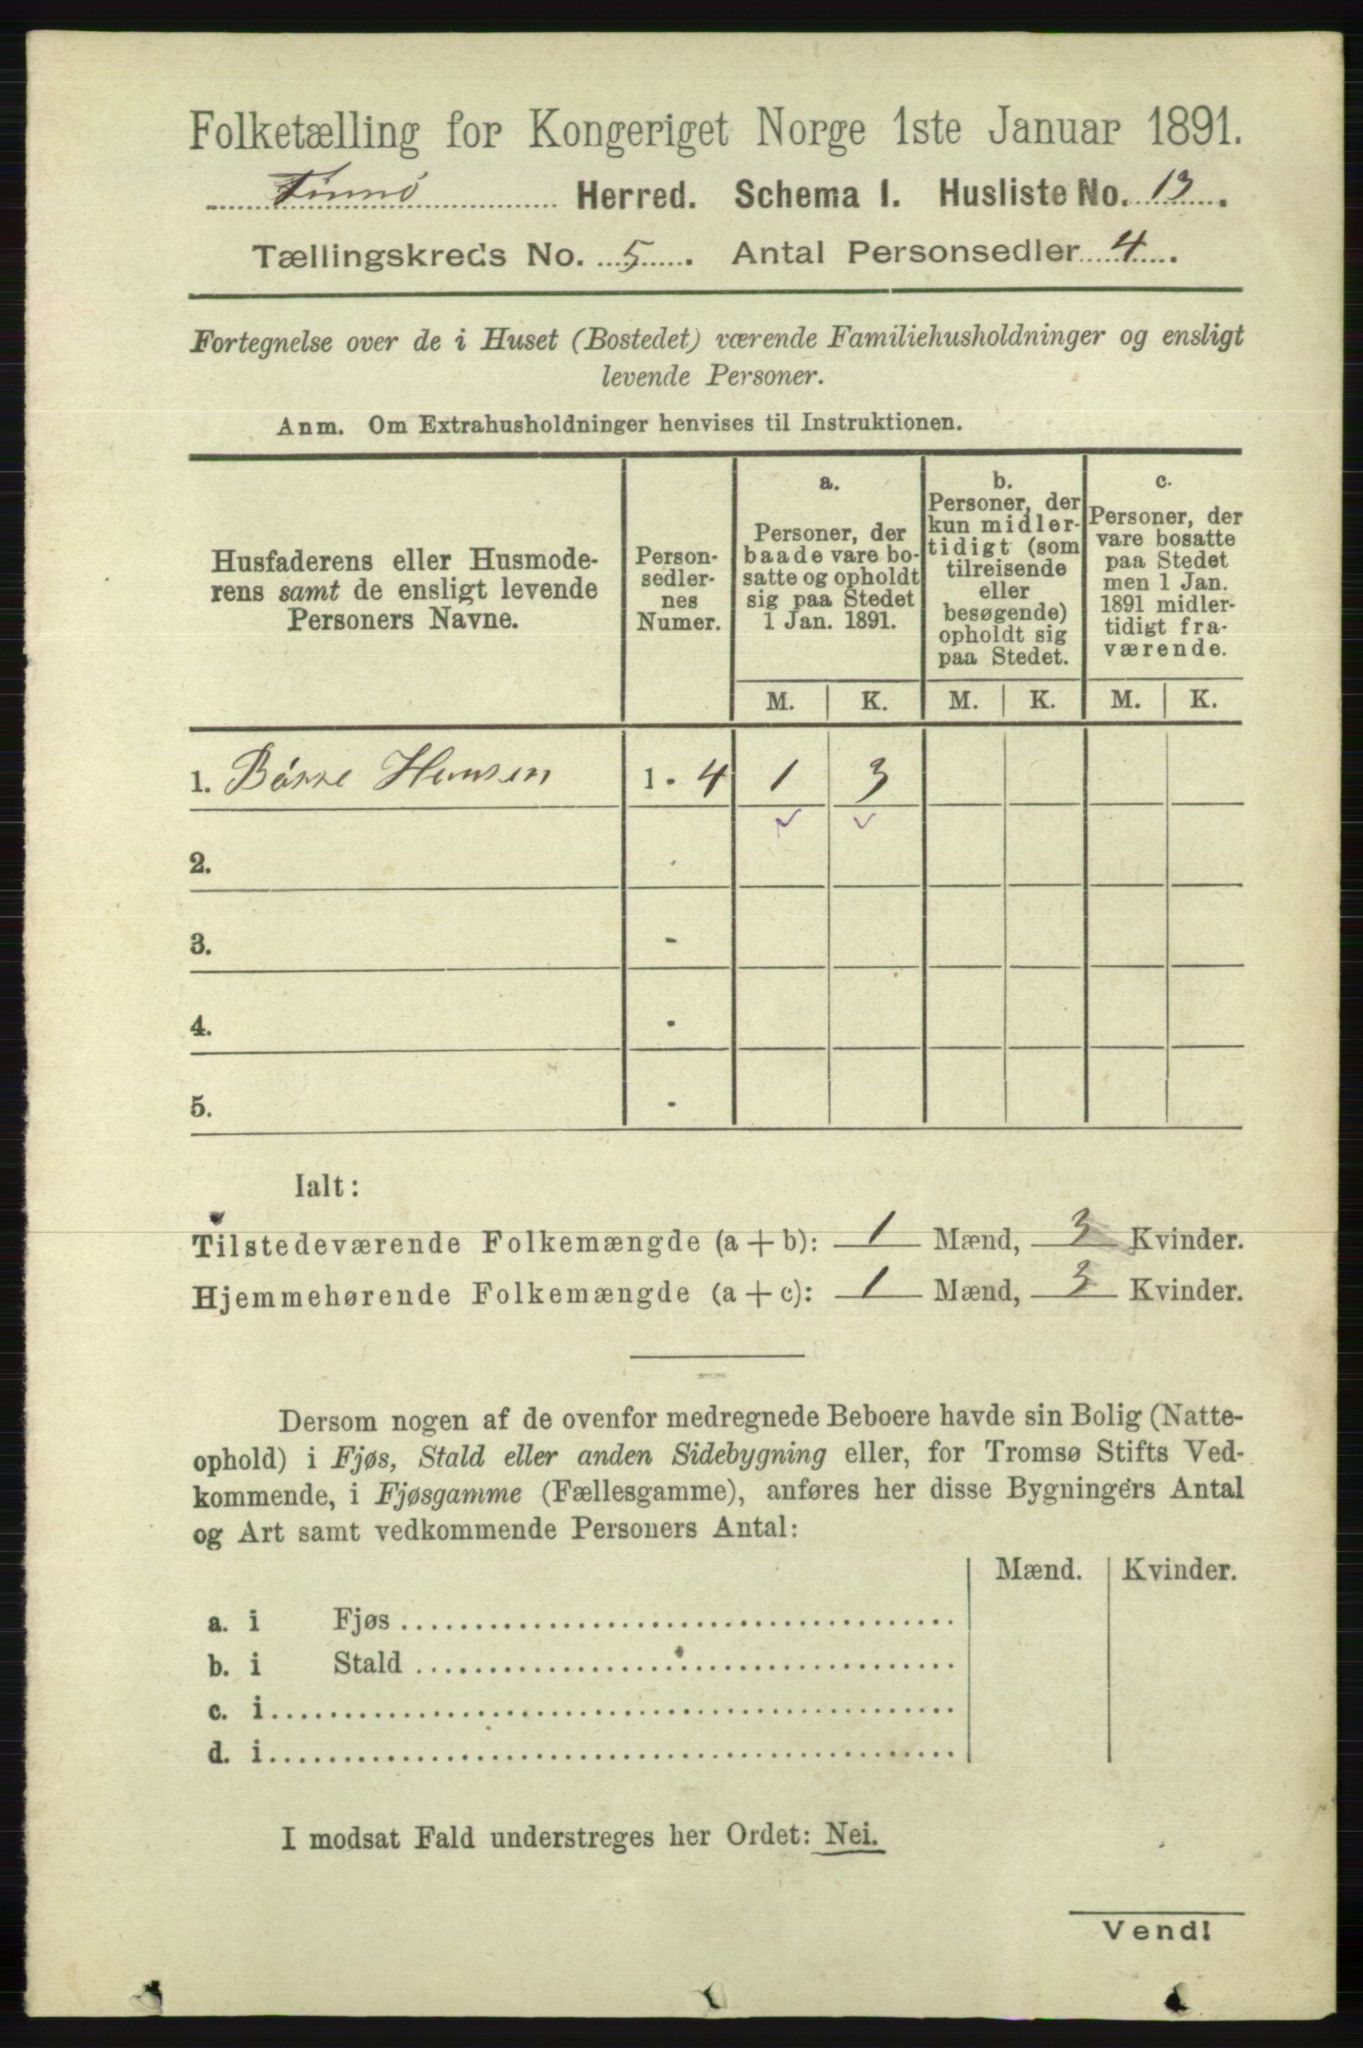 Folketælling for Kongeriget Norge 1ste Januar 1891.
Herred. Schema I. Husliste No. 13.
Tællingskreds No. 5. Antal Personsedler 4.
Fortegnelse over de i Huset (Bostedet) værende Familiehusholdninger og ensligt
levende Personer.
Anm. Om Extrahusholdninger henvises til Instruktionen.
Husfaderens eller Husmode-
rens samt de ensligt levende
Personers Navne.
Person-
sedler-
nes
Numer.
a.
Personer, der
baade vare bo-
satte og opholdt
sig paa Stedet
1 Jan. 1891.
b.
Personer, der
kun midler-
tidigt (som
tilreisende
eller
besøgende)
opholdt sig
paa Stedet.
c.
Personer, der
vare bosatte
paa Stedet
men 1 Jan.
1891 midler-
tidigt fra-
værende.
M. K. M. K. M. K.
1. Børre Hansen 1 - 4 1 3
2. -
3. -
4. -
5. -
Ialt:
Tilstedeværende Folkemængde (a + b): 1 Mænd, 3 Kvinder.
Hjemmehørende Folkemængde (a + c): 1 Mænd, 3 Kvinder.
Dersom nogen af de ovenfor medregnede Beboere havde sin Bolig (Natte-
ophold) i Fjøs, Stald eller anden Sidebygning eller, for Tromsø Stifts Ved-
kommende, i Fjøsgamme (Fællesgamme), anføres her disse Bygningers Antal
og Art samt vedkommende Personers Antal:
Mænd. Kvinder.
a. i Fjøs
b. i Stald
c. i
d. i
I modsat Fald understreges her Ordet: Nei.
Vend!